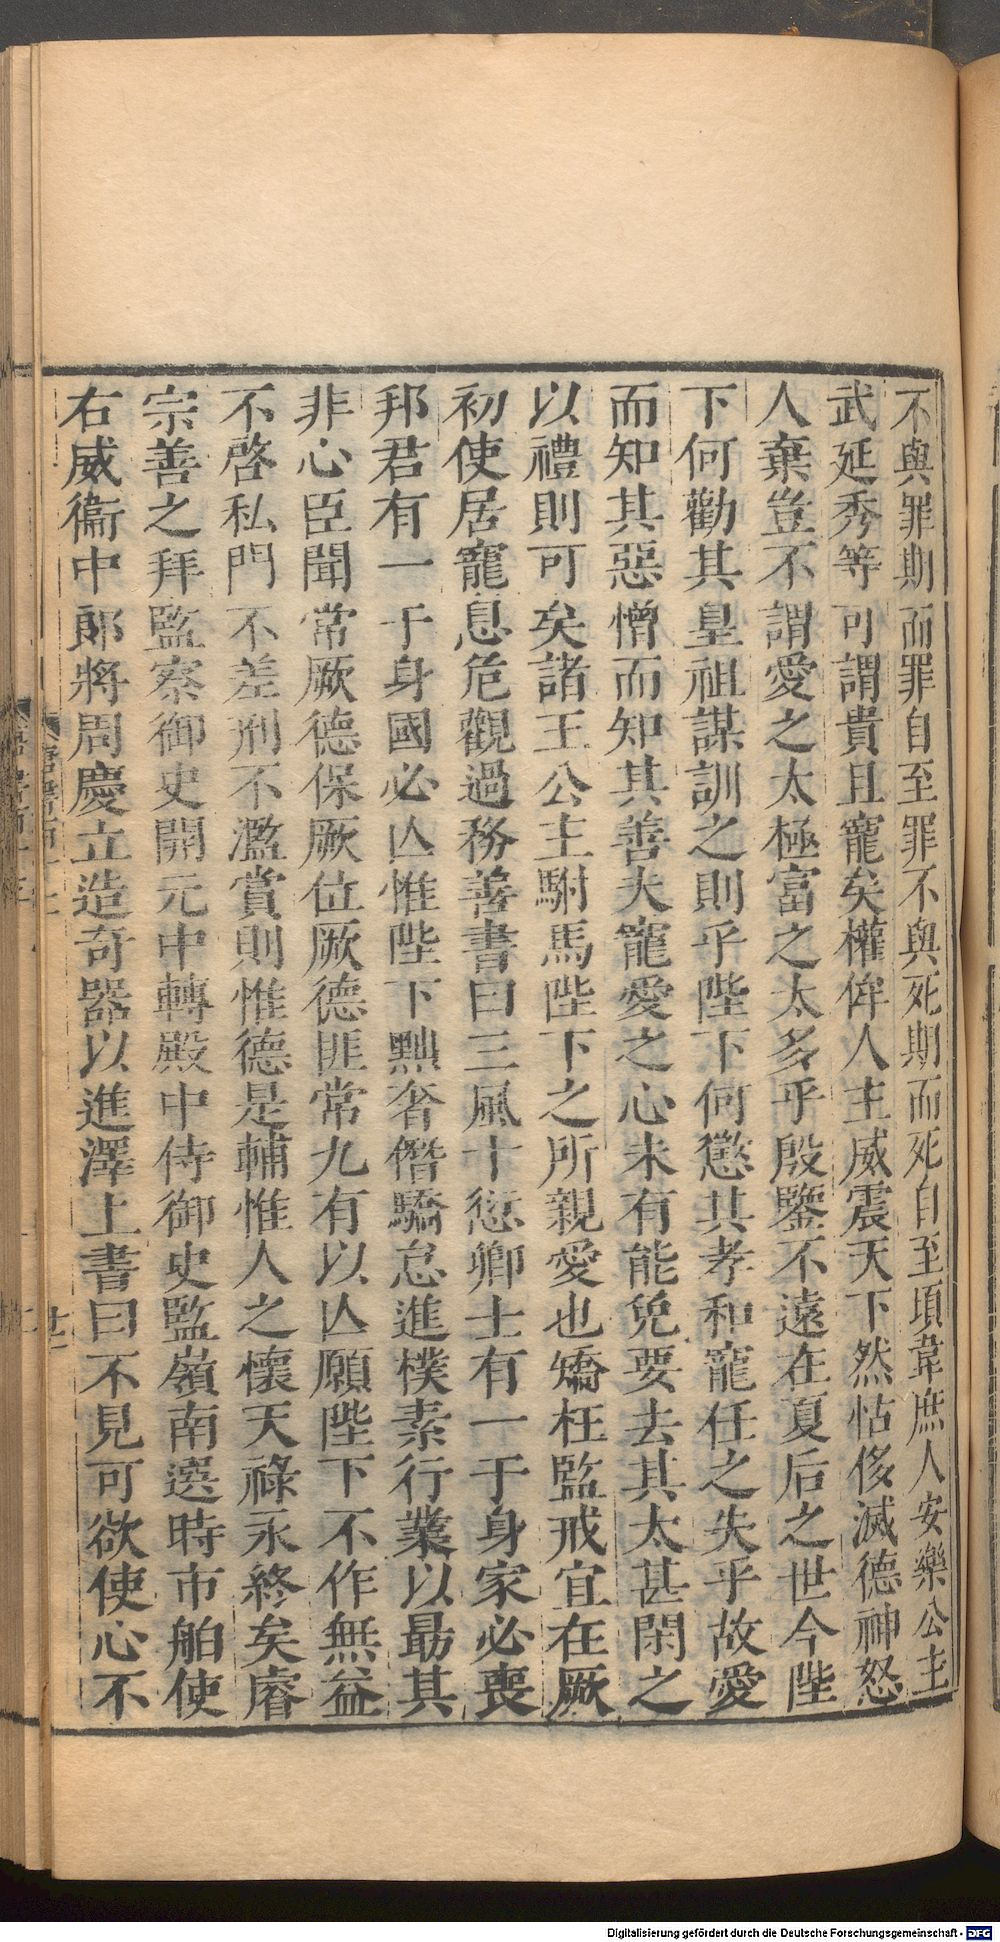 不與罪期而罪自至罪不與死期而死自至頃韋庶人安樂公主
武延秀等可謂貴且寵矣權侔人主威震天下然怙侈滅德神怒
人棄豈不謂愛之太極富之太多乎殷鑒不遠在夏后之世今陛
下何勸其皇祖謀訓之則乎陛下何懲其孝和寵任之失乎故愛
而知其惡憎而知其善夫寵愛之心未有能免要去其太甚閑之
以禮則可矣諸王公主駙馬陛下之所親愛也矯枉監戒宜在厥
初使居寵思危觀過務善書曰三風十愆卿士有一于身家必喪
邦君有一于身國必亾惟陛下黜奢僭驕怠進樸素行業以勗其
非心臣聞常厥德保厥位厥德匪常九有以亾願陛下不作無益
不啓私門不差刑不濫賞則惟德是輔惟人之懷天祿永終矣睿
宗善之拜監察御史開元中轉殿中侍御史監嶺南選時市舶使
右威衞中郎將周慶立造奇器以進澤上書曰不見可欲使心不
Digitalisierung gefördert durch die Deutsche Forschungsgemeinschaft - DFG